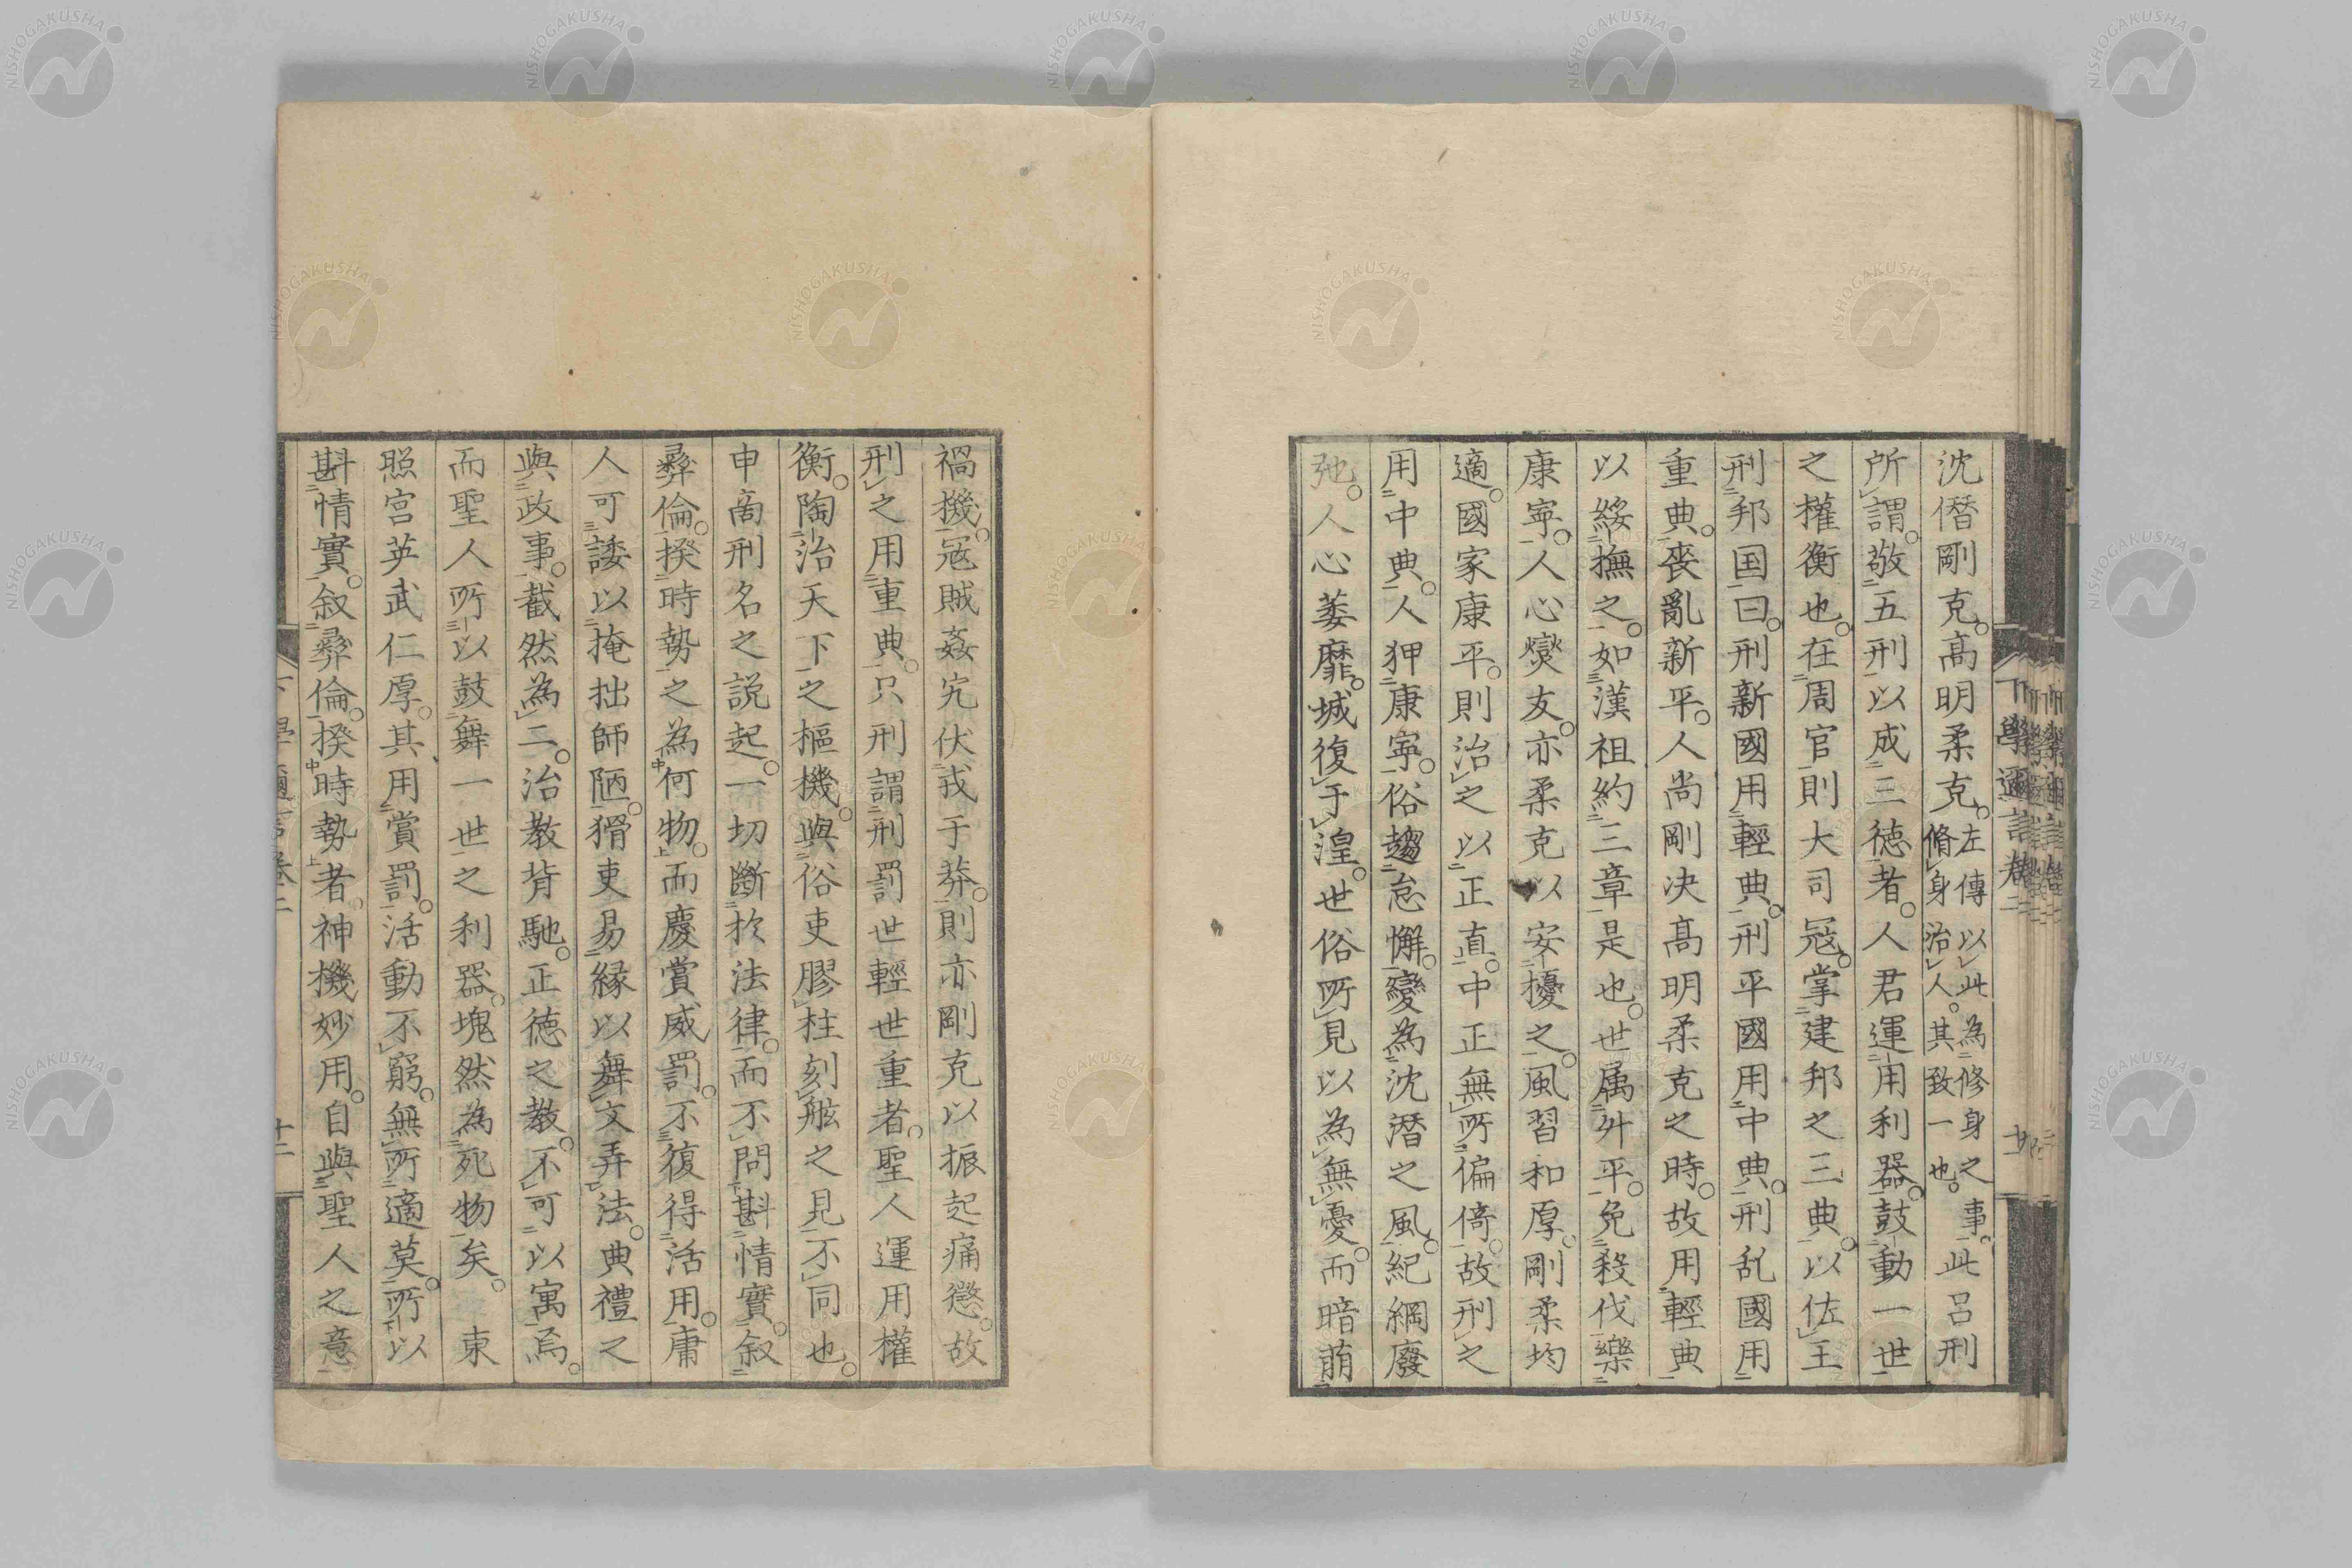 沈僭剛克。高明柔克。左傳以此為修身之事。脩身治人。其致一也。此呂刑
所謂。敬五刑以成三徳者。人君運用利器。鼓動一世
之權衡也。在周官則大司寇。掌建邦之三典。以佐王
刑邦国曰。刑新國用輕典。刑平國用中典。刑乱國用
重典。喪亂新平。人尚剛决高明柔克之時。故用輕典
以綏撫之。如漢祖約三章是也。世属升平。免殺伐樂
康寧。人心燮友。亦柔克以安擾之。風習和厚。剛柔均
適。國家康平。則治之以正直。中正無所偏倚。故刑之
用中典。人狎康寧。俗趨怠懈。變為沈潛之風。紀綱廢
弛。人心萎靡。城復于湟。世俗所見以為無憂。而暗萌
禍機。寇賊姦宄伏戎于莽。則亦剛克以振起痛懲。故
刑之用重典。只刑謂刑罰世輕世重者。聖人運用權
衡。陶治天下之樞機。與俗吏膠柱刻舷之見不同也。
申商刑名之説起。一切斷於法律。而不問斟情實。叙
彜倫。揆時勢之為何物。而慶賞威罰。不復得活用。庸
人可諉以掩拙師陋。猾吏易緣以舞文弄法。典禮之
與政事。截然為二。治教背馳。正徳之教。不可以寓焉。
而聖人所以鼓舞一世之利器。塊然為死物矣。東
照宮英武仁厚。其用賞罰。活動不窮。無所適莫。所以
斟情實。叙彜倫。揆時勢者。神機妙用。自與聖人之意
下學邇言卷二
十二